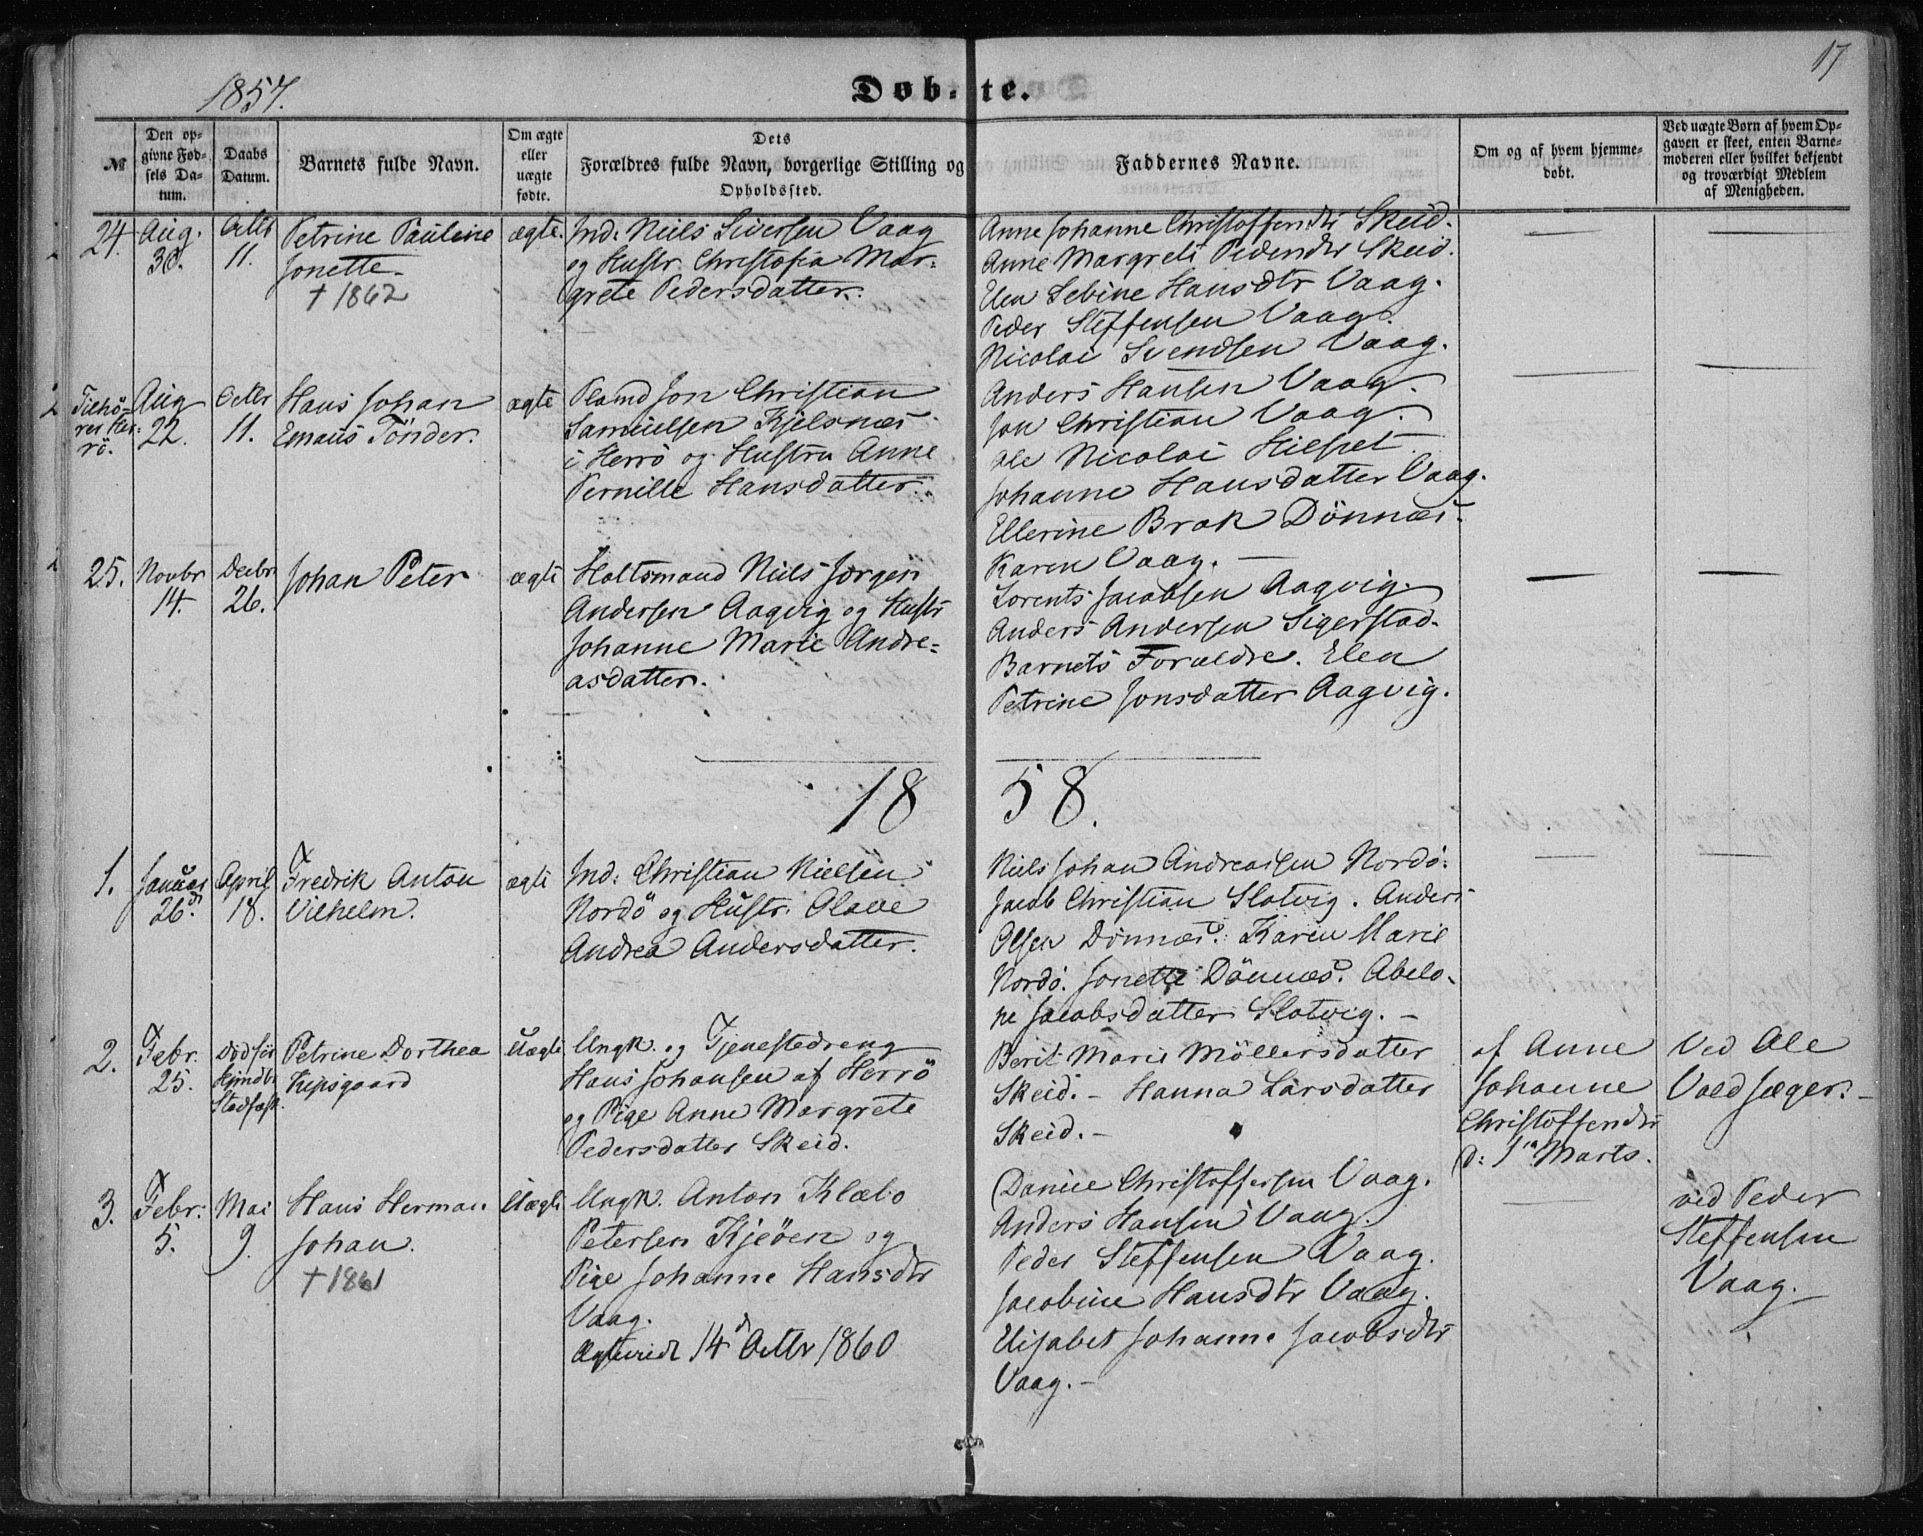 1857.
Døb-te.
17
№
Den opgivne Fødsels Datum.
Daabs Datum.
Barnets fulde Navn.
Om ægte eller uægte fødte.
Dets Forældres fulde Navn, borgerlige Stilling og Opholdssted.
Faddernes Navne.
Om og af hvem hjemmedøbt.
Ved uægte Børn af hvem Opgaven er skeet, enten Barnemoderen eller hvilket bekjendt og troværdigt Medlem af Menigheden.
24. Aug. 30. Octbr 11.
Petrine Pauline
Jonette.
† 1862
ægte.
Ind: Niels Siversen Vaag
og Hustr. Christofia Mar-
grete Pedersdatter.
Anne Johanne Christoffersdtr Skeid.
Anne Margrete Pedersdtr Skeid.
Elen Sebine Hansdtr Vaag.
Peder Steffensen Vaag.
Nicolai Svendsen Vaag.
Tilhö-
res Her-
rö.
Aug 22. Octbr 11.
Hans Johan
Emaus Tönder.
ægte
Pland Jon Christian
Samuelsen Kjelsnæs
i Herrö og Hustru Anne
Pernille Hansdatter.
Anders Hansen Vaag.
Jon Christian Vaag.
Ole Nicolai
Johanne Hansdatter Vaag.
Ellerine Brak Dönnæs.
Karen Vaag. —
25. Novbr 14. Decbr 26.
Johan Peter
ægte
Holtsmand Niels Jørgen
Andersen Aagvig og Hustr
Johanne Marie Andre-
asdatter.
Lorents Jacobsen Aagvig.
Anders Andersen Sigerstad.
Barnets Forældre. Elen
Petrine Jonsdatter Aagvig.
1858.
1. Januar 26d. April 18.
Fredrik Anton
Vilhelm.
ægte
Ind: Christian Nielsen
Nordö og Hustr. Olave
Andrea Andersdatter.
Niels Johan Andreassen Nordö.
Jacob Christian Slotvig. Anders
Olsen Dönnæs. Karen Marie
Nordö. Jonette Dönnæs. Abelo-
ne Jacobsdatter Slotvig. —
2. Febr. 25.
Död för
Stadfæst.
Petrine Dorthea
uægte
Ungk. og Tjenestedreng
Hans Johansen af Herrö
og Pige Anne Margrete
Pedersdatter Skeid.
Berit Marie Möllersdatter
Skeid. — Hanna Larsdatter
Skeid. —
af Anne
Johanne
Christoffersdtr
d: 1ste Marts.
Ved Ole
Valdjæger. —
3. Febr: 5. Mai 9.
Hans Herman
Johan.
† 1861
Uægte
Ungk. Anton Klæbo
Petersen Kjeöen og
Pige Johanne Hansdtr
Vaag.
Ægteviet 14d Octbr 1860
Daniel Christoffersen Vaag.
Anders Hansen Vaag.
Peder Steffensen Vaag.
Jacobine Hansdtr Vaag.
Elisabet Johanne Jacobsdtr
Vaag. —
ved Peder
Steffensen
Vaag.